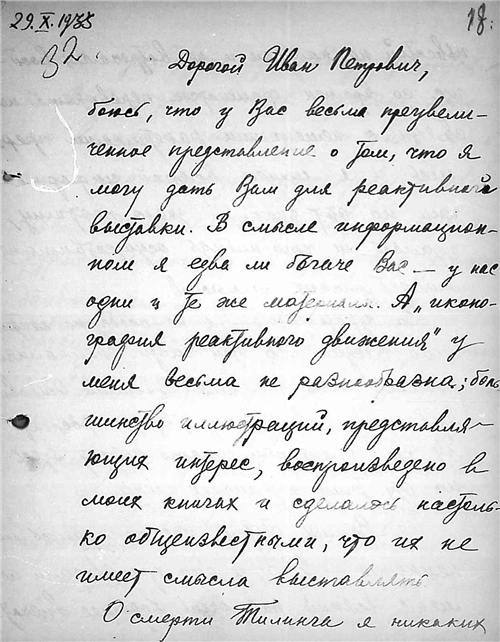 29.X.1935
18.
32
Дорогой Иван Петрович,
боюсь, что у Вас весьма преувели-
ченное представление о том, что я
могу дать Вам для реактивной
выставки. В смысле информацион-
ном я едва ли богаче Вас — у нас
одни и те же материалы. А „иконо-
графия реактивного движения" у
меня весьма не разнообразна; боль
шинство иллюстраций, представля-
ющих интерес, воспроизведено в
моих книгах и сделалось настоль-
ко общеизвестными, что их не
имеет смысла выставлять
О смерти Тилинга я никаких